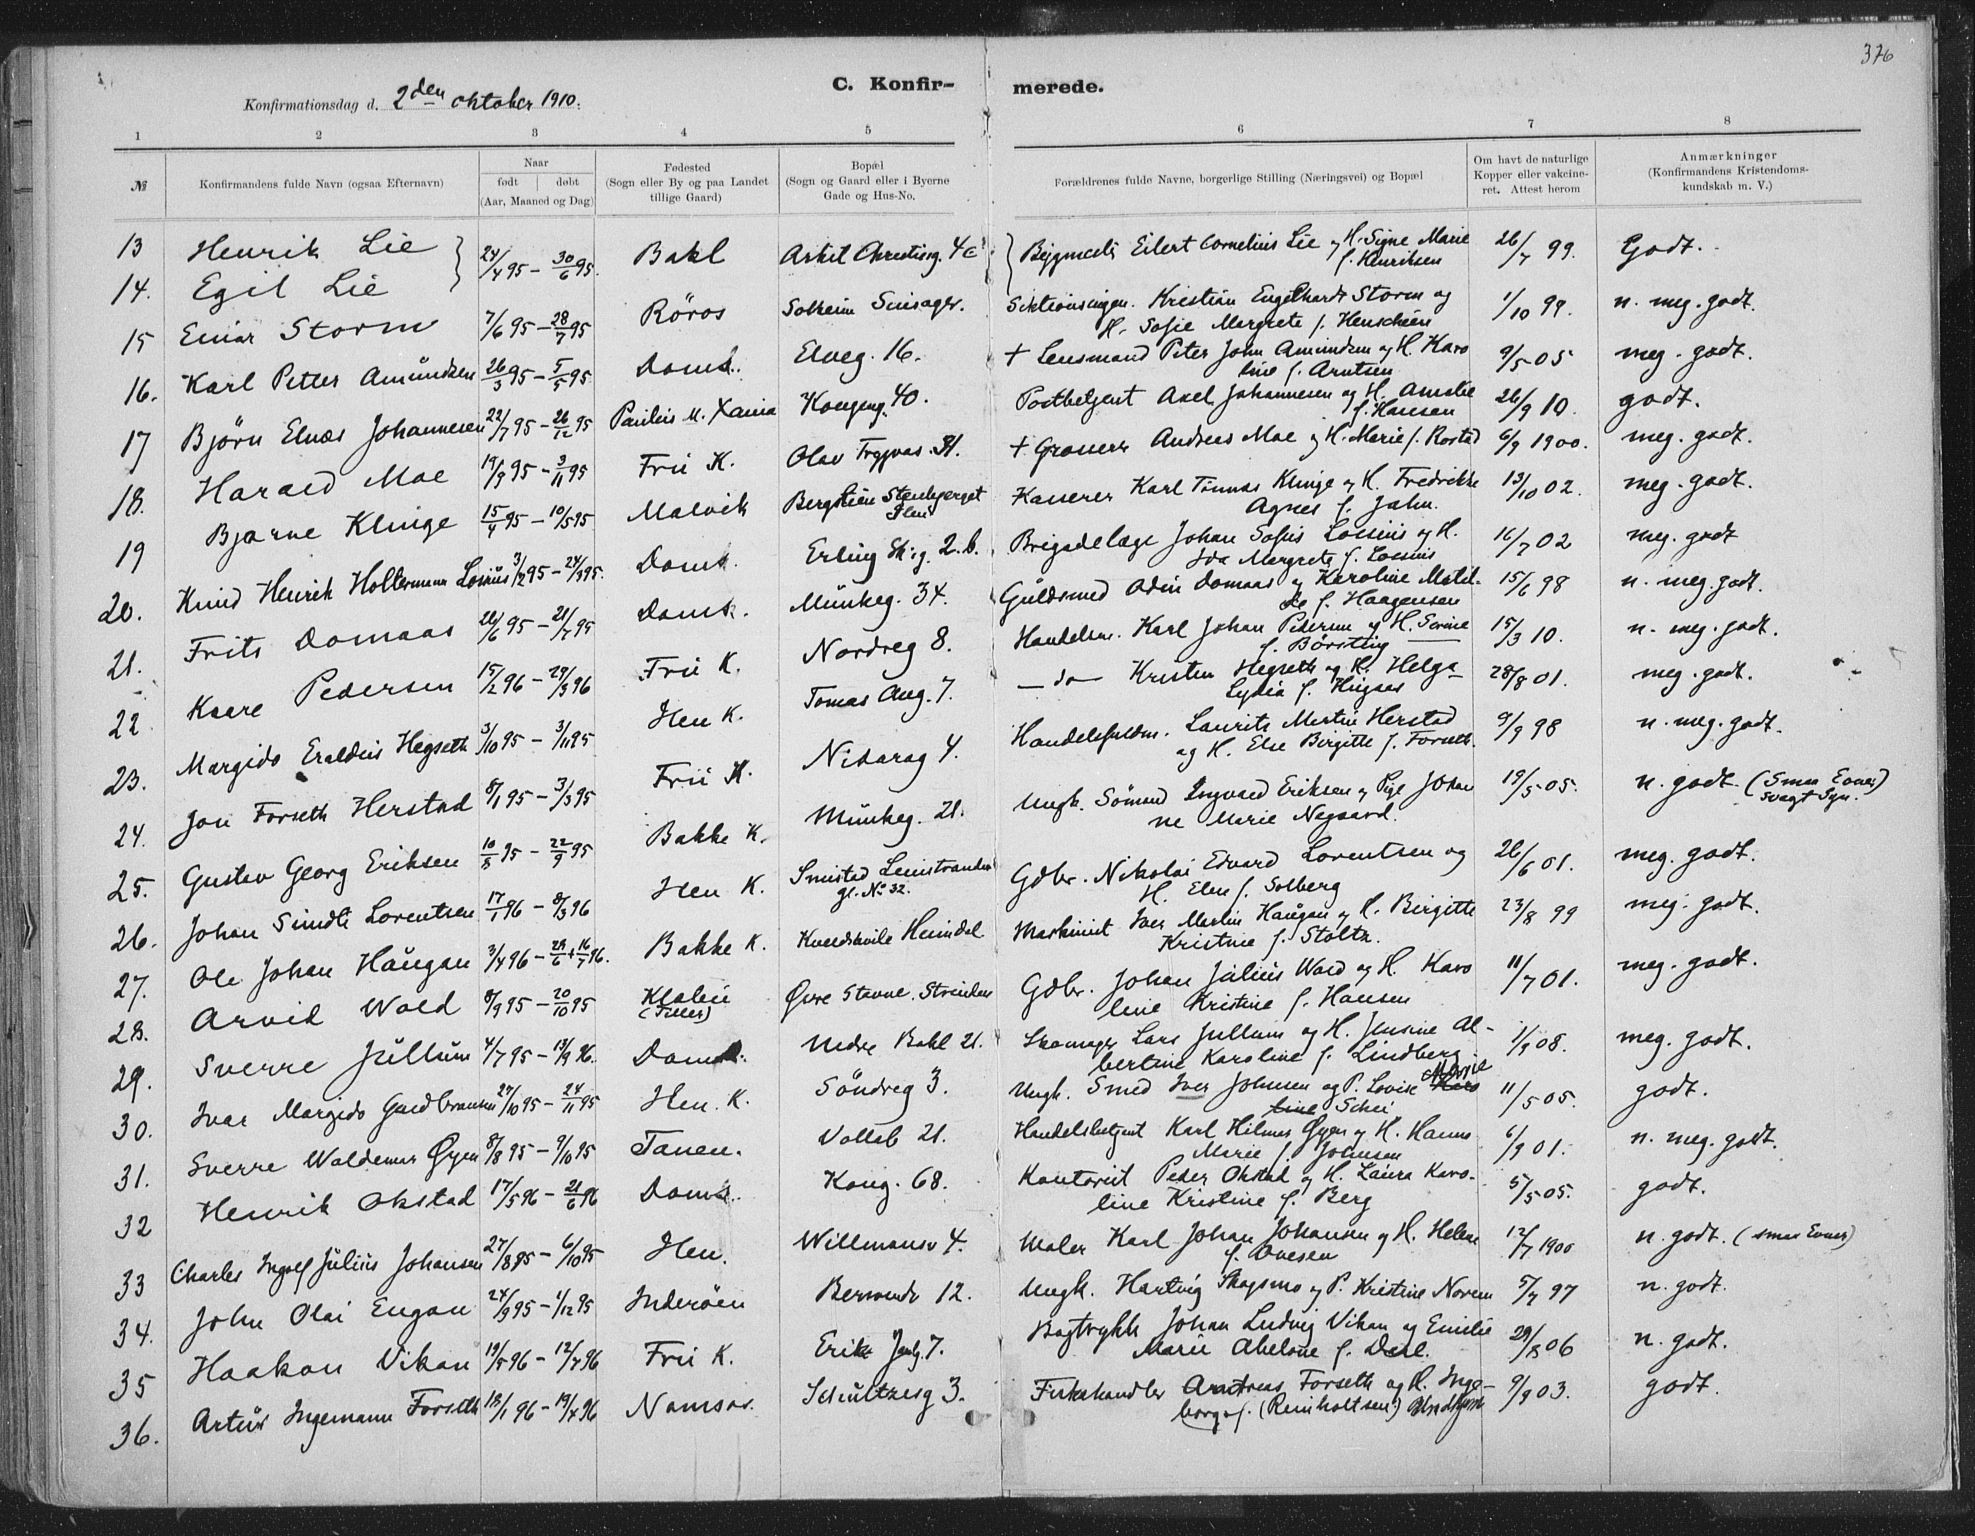 376
C. Konfir- merede.
Konfirmationsdag d. 2den oktober 1910.
1 2 3 4 5 6 7 8
№ Konfirmandens fulde Navn (ogsaa Efternavn) Naar født døbt (Aar, Maaned og Dag) Fødested (Sogn eller By og paa Landet tillige Gaard) Bopæl (Sogn og Gaard eller i Byerne Gade og Hus-No. Forældrenes fulde Navne, borgerlige Stilling (Næringsvei) og Bopæl Om havt de naturlige Kopper eller vakcineret. Attest herom Anmærkninger (Konfirmandens Kristendomskundskab m. V.)
13 Henrik Lie } 24/4 95 - 30/6 95. Bakl 4c } Eilert Cornelius Lie og H. Signe Marie 26/7 99. Godt.
f. Henriksen
14. Egil Lie
15 Einar Storm 7/6 95 - 28/7 95 Röros Kristian Engelhardt Storm og 1/10 99. n. meg. godt.
H. Sofie Margrete f.
16. Karl Petter Amündsen 26/3 95 - 5/5 95 Doms. Elveg. 16. + Lensmand Peter John Amundsen og H. Karo 9/5 05 meg. godt.
line f. Arntsen
17 Björn Elnæs Johannesen 22/7 95 - 26/12 95 Kongensg. 40. Postbetjent Axel Johannesen og H. Amalie 26/9 10. godt.
f. Hansen
18. Harald Moe 19/9 95 - 3/11 95 Frü K. Olav Trygvas. + Grosserer Andreas Moe og H. Marie f. Rostad 6/9 1900. meg. godt.
19 Bjarne Klinge 15/4 95 - 10/5 95 Malvik Stenbjerget Kasserer Karl Klinge og H. Fredrikke 13/10 02. meg. godt.
Ilen Agnes f. Jahn.
20. Knud Henrik Holtermann Lossius 3/2 95 - 24/3 95. Doms. Erling Sk.g. 2.b. Brigadelæge Johan Sofus Lossius og H. 16/7 02 meg. godt
Ida Margrete f. Lossius
21. Frits Domaas 26/6 95 - 21/7 95 Doms. Münkeg. 34. Güldsmed Odin Domaas og Karoline Matil- 15/6 98 n. meg. godt.
de f. Haagensen
22 Kaare Pedersen 15/2 96 - 29/3 96 Frü K. Nordreg 8. Handelsm. Karl Johan Pedersen og H. Serine 15/3 10. n. meg. godt.
f. Börsting
23. Margido Hegseth 3/10 95 - 3/11 95 Hen K. Tomas Ang. 7. — do — Kristen Hegseth og H. Helga 28/8 01. meg. godt.
Lydia f.
24. Jon Forseth Herstad 8/1 95 - 3/3 95 Frü K. Nidarøg 4. Handelsfuldm. Laurits Martin Herstad 9/9 98 n. meg. godt.
og H. Else Birgitte f. Forseth.
25. Gustav Georg Eriksen 10/8 95 - 22/9 95 Bakke K. Münkeg. 21. Ungk. Sömand Ingvald Eriksen og Pige Johan 19/5 05. n. godt (Smaa Evner)
ne Marie Negaard. svagt Syn.
26. Johan Lorentsen 17/1 96 - 8/3 96 Hen K. gl. No 32. Gdbr. Nikolai Edvard Lorentsen og 26/6 01. meg. godt.
H. Elen f. Solberg
27. Ole Johan Haügan 3/4 96 - 28/6 + 16/7 96. Bakke K. Heimdal Maskinist Iver Martin Haügan og H. Birgitte 23/8 99 meg. godt.
Kristine f. Stoltz.
28. Arvid Wold 8/9 95 - 20/10 95 Klæbü Øvre Stavne. Strinden Gdbr. Johan Julius Wold og H. Karo 11/7 01. meg. godt.
(Tiller) line Kristine f. Hansen
29. Sverre Jüllum 4/7 95 - 13/9 96. Doms. Nedre Bakl 21. Skomager Lars Jullum og H. Jensine Al- 1/9 08. meg. godt.
bertine Karoline f. Lindberg
30. Ivar Margido Guldbransen 27/10 95 - 24/11 95 Hen. K. Söndreg 3. Ungk. Smed Iver Johnsen og P. Lovise Marie 11/5 05. godt.
Schei
31. Sverre Waldemar Øyen 8/8 95 - 9/10 95 Tanen. Vollab 21. Handelsbetjent Karl Hilmar Øyen og H. Hanna 6/9 01. n. meg. godt.
Marie f. Johnsen
32 Henrik Okstad 17/5 96 - 21/6 96 Doms. Kong. 68. Kontorist Peder Okstad og H. Laura Karo- 5/5 05. godt.
line Kristine f. Berg
33 Charles Ingolf Jülius Johansen 27/8 95 - 6/10 95 Hen. Willmansv 4. Maler Karl Johan Johansen og H. Helene 12/7 1900 n. godt. (smaa Evner)
f. Ovesen
34. John Olai Engan 24/9 95 - 1/12 95 Inderöen 12. Ungk. Hartvig Skogsmo og P. Kristine Norem 5/7 97 n. godt.
35 Haakon Vikan 19/5 96 - 12/7 96 Frü K. Erik Jarlsg. 7. Bogtrykk Johan Ludvig Vikan og Emilie 29/8 06 n. godt.
Marie Abelone f.
36. Artür Ingemann Forseth 18/1 96 - 19/4 96 Namsos. Schültzesg 3. Fiskehandler Andreas Forseth og H. Inge- 9/9 03. godt.
borg f. (Reinholtsen)